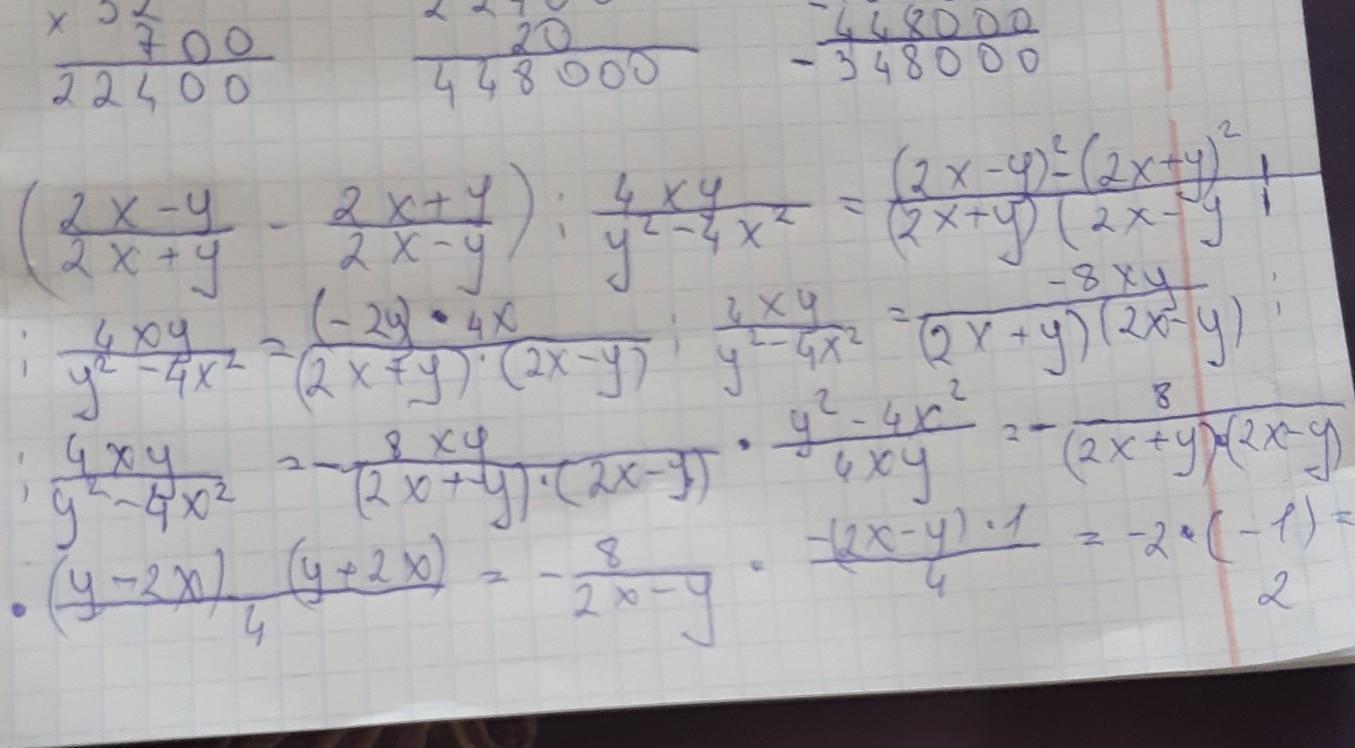 × 32
700
22400
20
448000
448000
-348000
(2x-y/2x+y - 2x+y/2x-y) : 4xy/y²-4x² = (2x-y)²-(2x+y)²/(2x+y)(2x-y :
: 4xy/y²-4x² = (-2y)·4x/(2x+y)·(2x-y) : 4xy/y²-4x² = -8xy/(2x+y)(2x-y) :
: 4xy/y²-4x² = - 8xy/(2x+y)·(2x-y) · y²-4x²/4xy = - 8/(2x+y)·(2x-y)
· (y-2x) (y+2x)/4 = - 8/2x-y · -(2x-y)·1/4 = -2·(-1) =
2